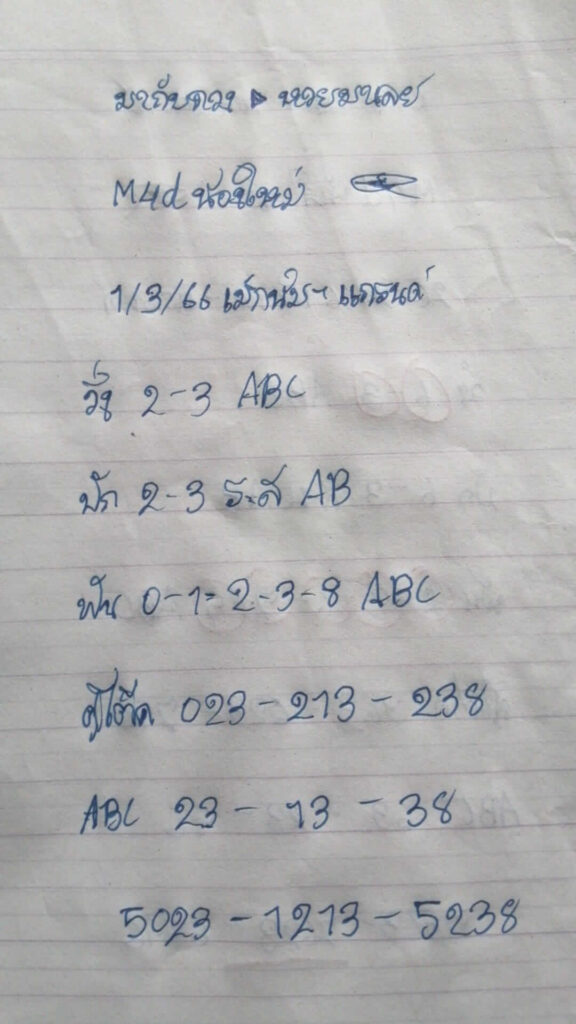 มากับดวง ▶ หวยมาเลย์
M4d น้องใหม่
1/3/66 แม็กนั่มฯ แกรนด์
วิ่ง 2-3 ABC
ปัก 2-3 ระส AB
ฟัน 0-1-2-3-8 ABC
คู่โต๊ด 023 - 213 - 238
ABC 23 - 13 - 38
5023 - 1213 - 5238